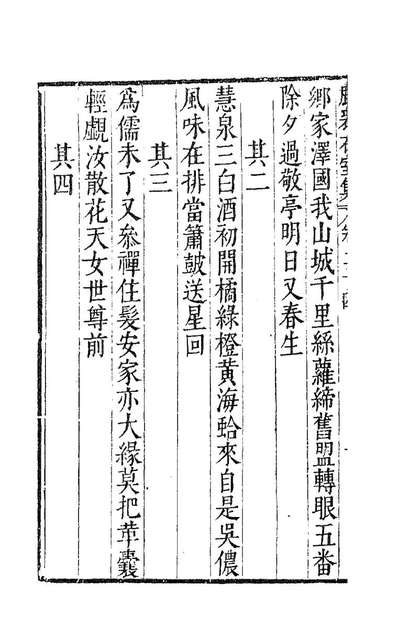 卿家澤國我山城千里絲蘿締舊盟轉眼五番
除夕過敬亭明日又春生
其二
慧泉三白酒初開橘綠橙黃海蛤來自是吳儂
風味在排當簫鼓送星回
其三
為儒未了又參禪住髮安家亦大緣莫把革囊
輕覷汝散花天女世尊前
其四